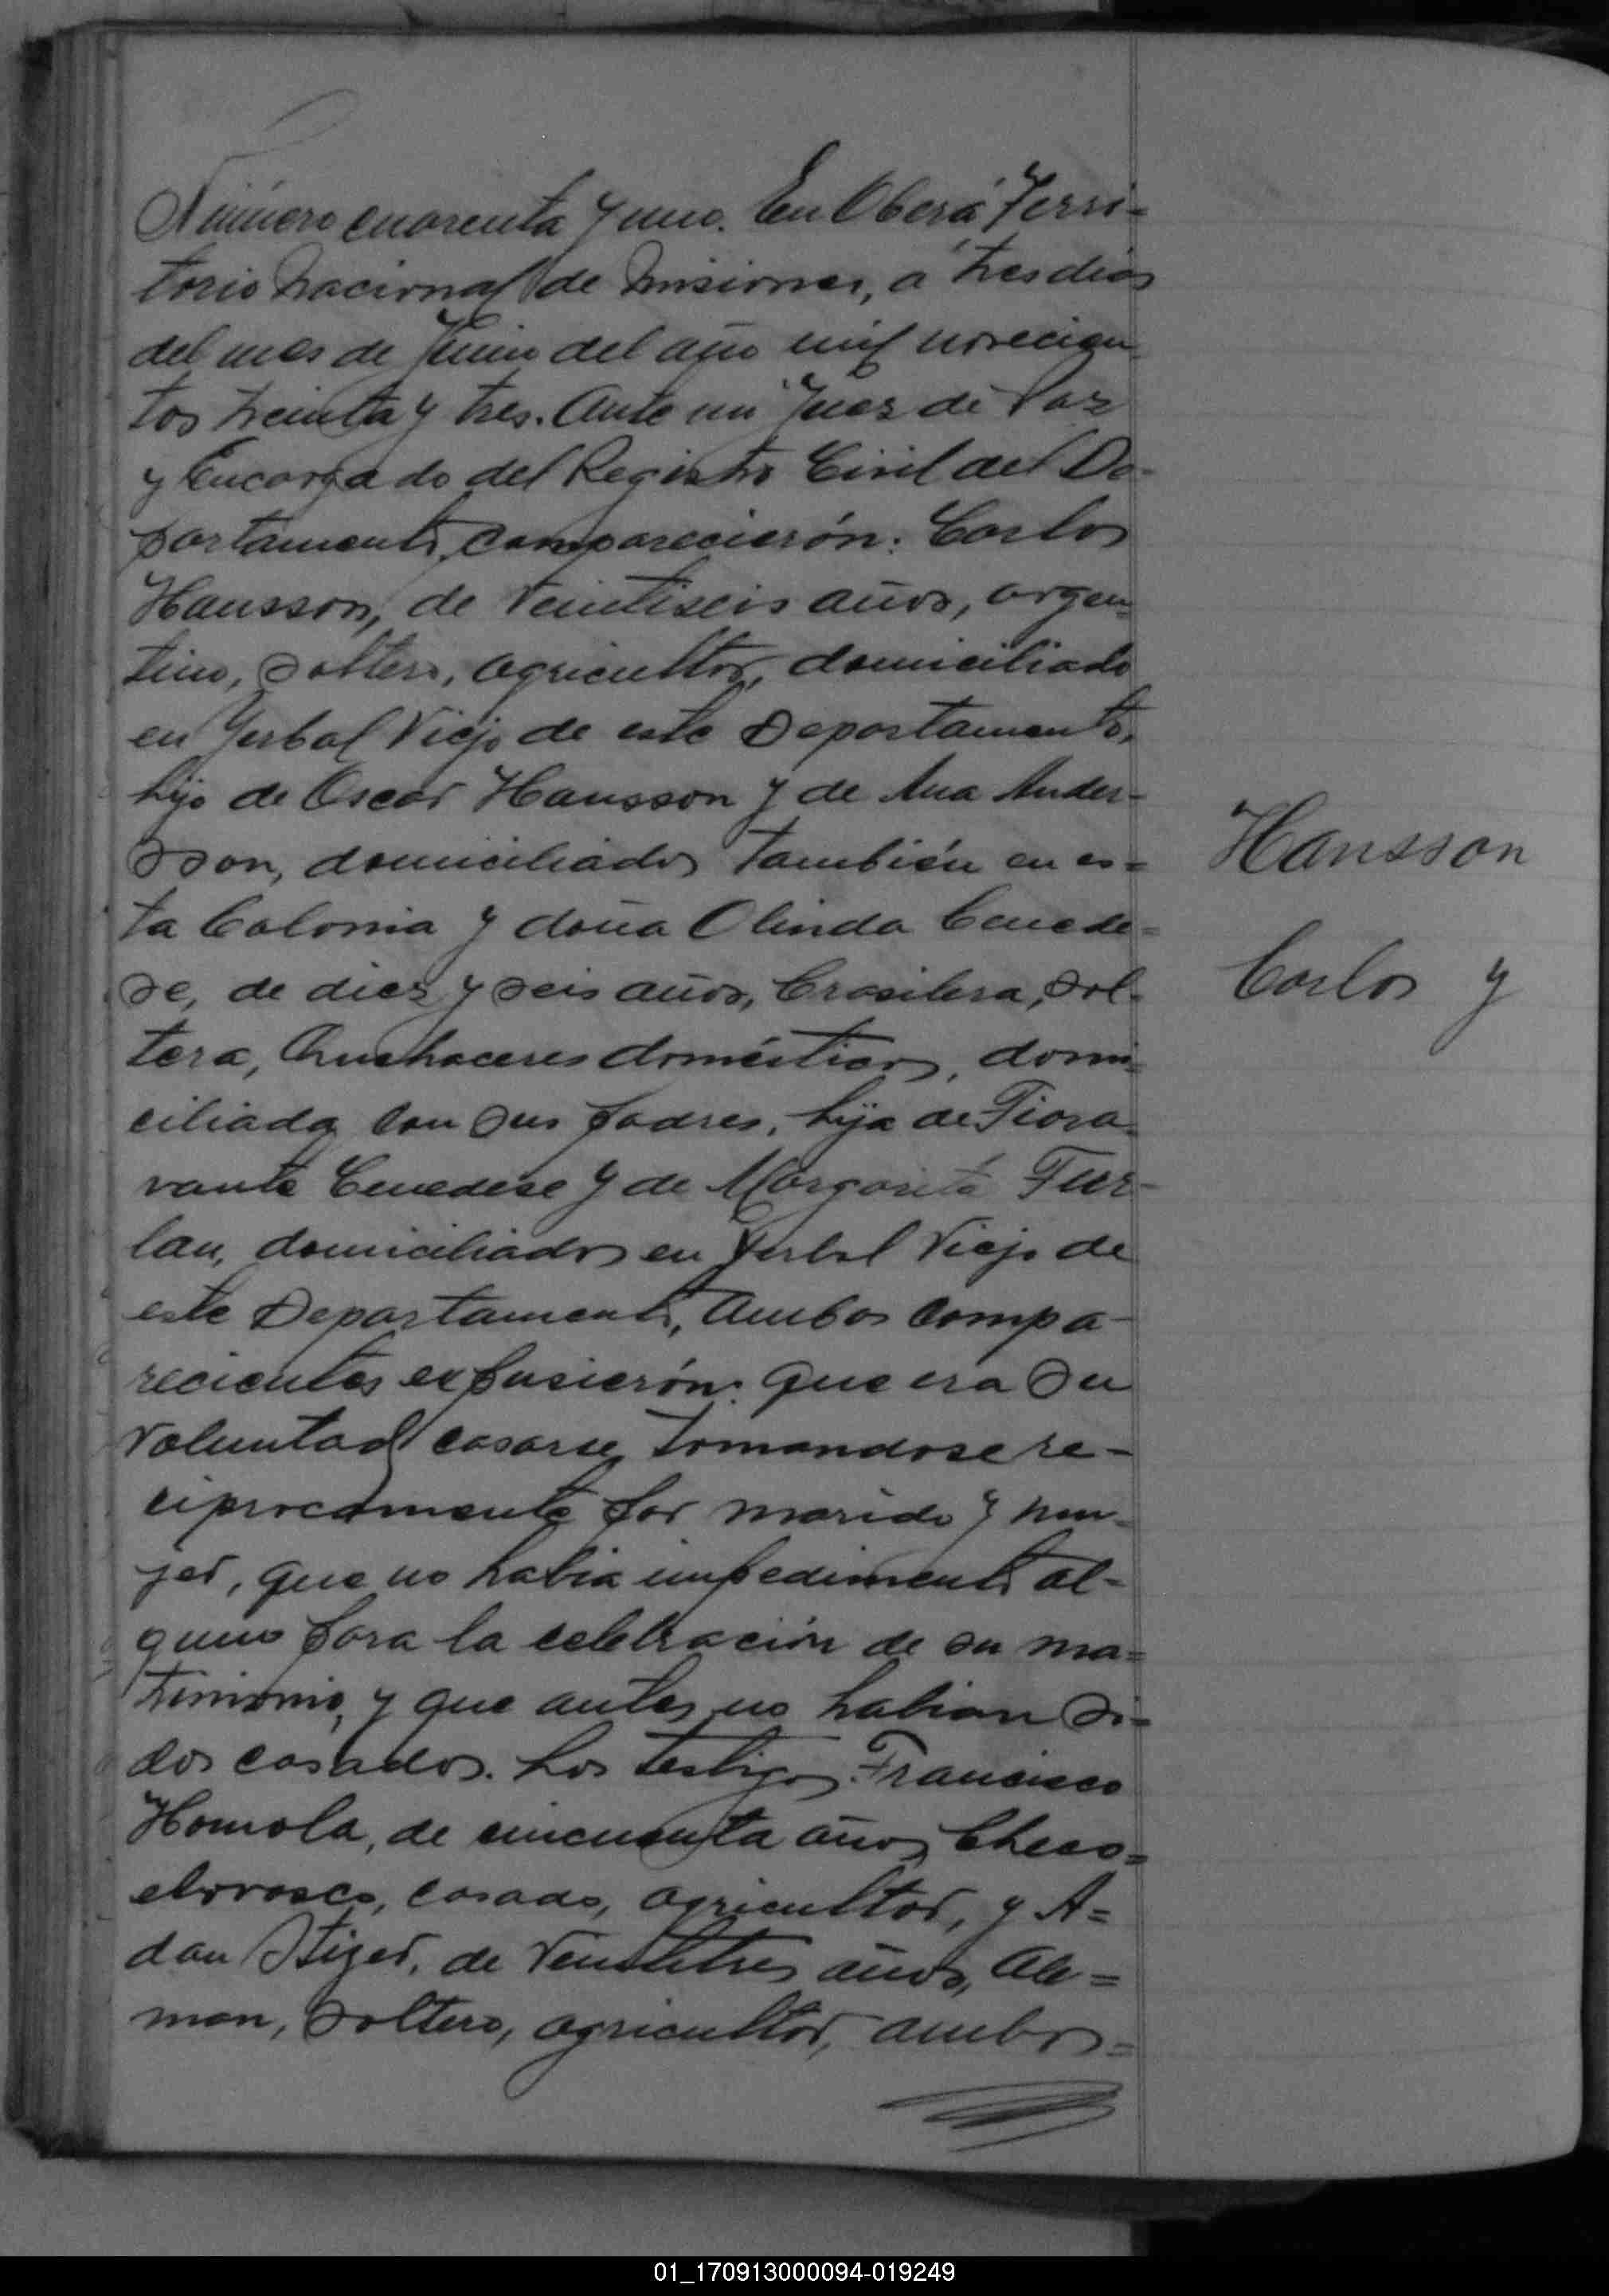 Número cuarenta y uno. En Oberá Terri-
torio Nacional de Misiones, a tres dias
del mes de Junio del año mil novecien
tos treinta y tres. Ante mi Juez de Paz
y Encargado del Registro Civil del De-
partamento, comparecierón: Carlos
Hansson, de veintiseis años, argen-
tino, soltero, agricultor, domiciliado
en Yerbal Viejo de este Departamento,
hijo de Oscar Hansson y de Ana Ander-
sson, domiciliados también en es=
ta Colonia y doña Olinda Cenede=
se, de diez y seis años, brasilera, sol-
tera, Quehaceres domésticos, domi-
ciliada con sus padres, hija de Fiora-
vante Cenedese y de Margarita Fur-
lan, domiciliados en Yerbal Viejo de
este Departamento, Ambos compa-
recientes expusierón: que era su
voluntad casarse tomandose re-
ciprocamente por marido y mu-
jer, que no habia impedimento al-
guno para la celebración de su ma=
trimonio, y que antes no habian si=
dos casados. Los testigos Francisco
Homola, de cincuenta años, Checo=
eslovaco, casado, agricultor, y A=
dan Stiger, de ventitres años, Ale=
man, soltero, agricultor, ambos=
Hansson
Carlos y
01_170913000094-019249